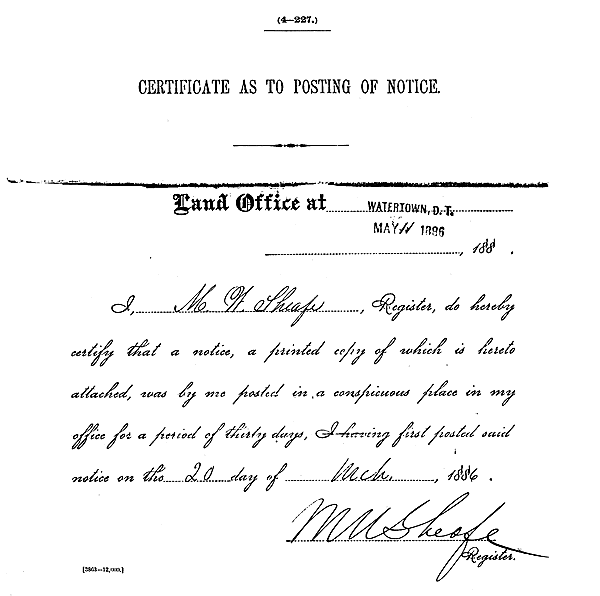 (4—227.)
CERTIFICATE AS TO POSTING OF NOTICE.
Land Office at WATERTOWN, D.T.
MAY 11 1886
, 188 .
I, M. W. Sheafe, Register, do hereby
certify that a notice, a printed copy of which is hereto
attached, was by me posted in a conspicuous place in my
office for a period of thirty days, I having first posted said
notice on the 20 day of Mch., 1886.
M W Sheafe
Register.
[3863—12,000.]